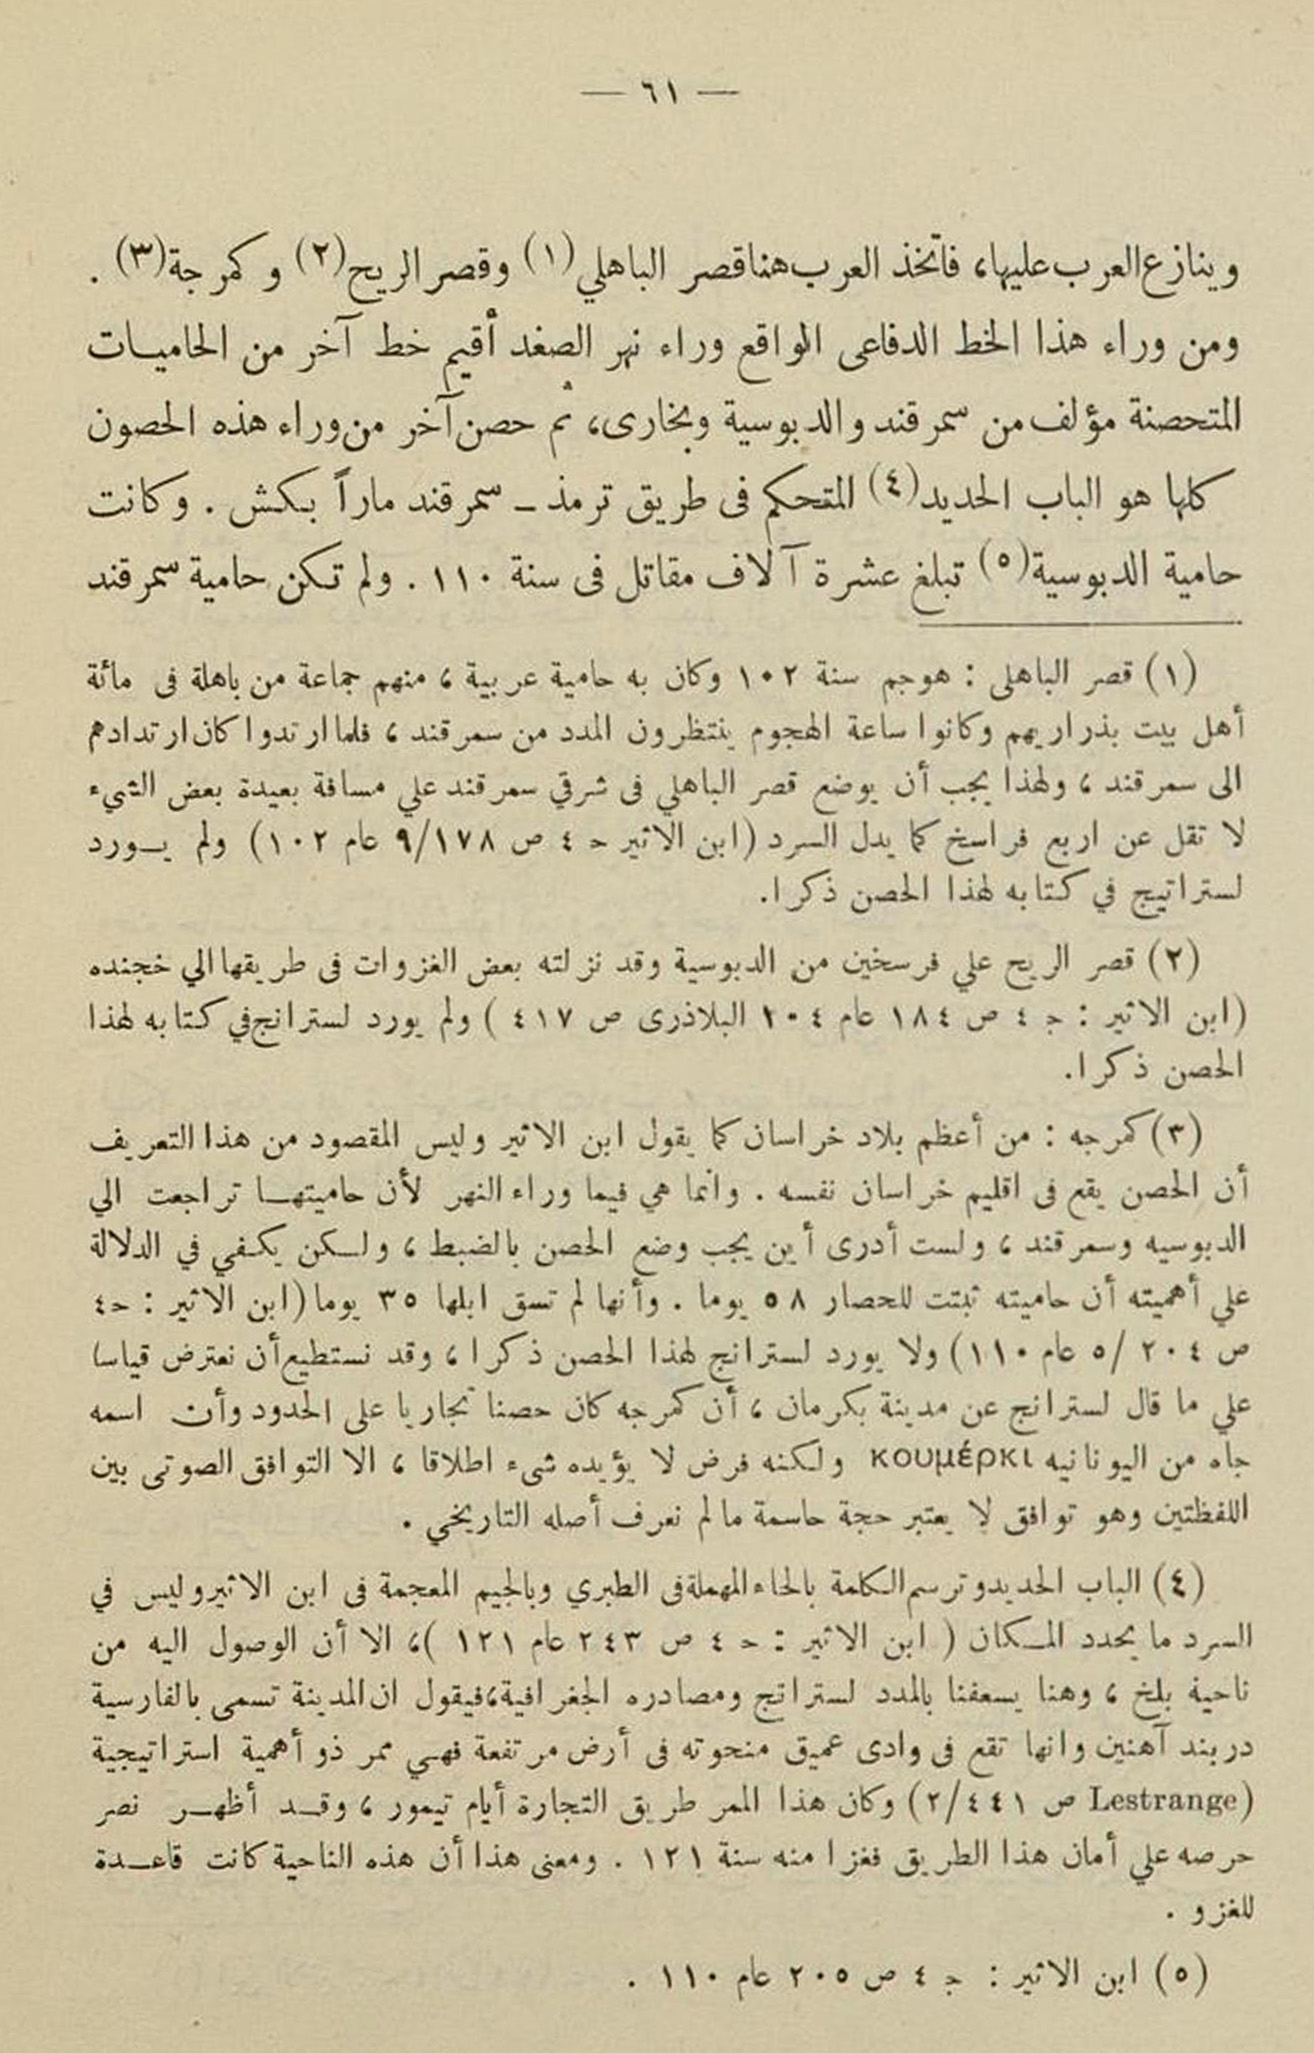 — ٦١ —
وينازع العرب عليها، فاتّخذ العرب هنا قصر الباهلي (١) وقصر الريح (٢) وكمرجة (٣) .
ومن وراء هذا الخط الدفاعى الواقع وراء نهر الصغد أقيم خط آخر من الحاميات
المتحصنة مؤلف من سمرقند والدبوسية وبخارى، ثم حصن آخر من وراء هذه الحصون
كلها هو الباب الحديد (٤) المتحكم فى طريق ترمذ ــ سمرقند ماراً بكش . وكانت
حامية الدبوسية (٥) تبلغ عشرة آلاف مقاتل فى سنة ١١٠ . ولم تكن حامية سمرقند
(١) قصر الباهلى : هوجم سنة ١٠٢ وكان به حامية عربية ، منهم جماعة من باهلة فى مائة
أهل بيت بذراريهم وكانوا ساعة الهجوم ينتظرون المدد من سمرقند ، فلما ارتدوا كان ارتدادهم
الى سمرقند ، ولهذا يجب أن يوضع قصر الباهلي فى شرقي سمرقند علي مسافة بعيدة بعض الشيء
لا تقل عن اربع فراسخ كما يدل السرد (ابن الاثير حـ ٤ ص ٩/١٧٨ عام ١٠٢) ولم يورد
لستراتيج في كتابه لهذا الحصن ذكرا.
(٢) قصر الريح علي فرسخين من الدبوسية وقد نزلته بعض الغزوات فى طريقها الي خجنده
(ابن الاثير : جـ ٤ ص ١٨٤ عام ١٠٤ البلاذرى ص ٤١٧ ) ولم يورد لسترانج في كتابه لهذا
الحصن ذكرا.
(٣) كمرجه : من أعظم بلاد خراسان كما يقول ابن الاثير وليس المقصود من هذا التعريف
أن الحصن يقع فى اقليم خراسان نفسه . وانما هي فيما وراء النهر لأن حاميتها تراجعت الي
الدبوسيه وسمرقند ، ولست أدرى أين يجب وضع الحصن بالضبط ، ولكن يكفي في الدلالة
علي أهميته أن حاميته ثبتت للحصار ٥٨ يوما . وأنها لم تسق ابلها ٣٥ يوما (ابن الاثير : حـ ٤
ص ٢٠٤ /٥ عام ١١٠) ولا يورد لسترانج لهذا الحصن ذكرا ، وقد نستطيع أن نعترض قياسا
علي ما قال لسترانج عن مدينة بكرمان ، أن كمرجه كان حصنا تجاريا على الحدود وأن اسمه
جاء من اليونانيه κουμέρκι ولكنه فرض لا يؤيده شىء اطلاقا ، الا التوافق الصوتى بين
اللفظتين وهو توافق لا يعتبر حجة حاسمة ما لم نعرف أصله التاريخي .
(٤) الباب الحديد وترسم الكلمة بالحاء المهملة فى الطبري وبالجيم المعجمة فى ابن الاثير وليس في
السرد ما يحدد المكان ( ابن الاثير : حـ ٤ ص ٢٤٣ عام ١٢١ )، الا أن الوصول اليه من
ناحية بلخ ، وهنا يسعفنا بالمدد لسترانج ومصادره الجغرافية، فيقول ان المدينة تسمى بالفارسية
دربند آهنين وانها تقع فى وادى عميق منحوته فى أرض مرتفعة فهي ممر ذو أهمية استراتيجية
(Lestrange ص ٢/٤٤١) وكان هذا الممر طريق التجارة أيام تيمور ، وقد أظهر نصر
حرصه علي أمان هذا الطريق فغزا منه سنة ١٢١ . ومعنى هذا أن هذه الناحية كانت قاعدة
للغزو .
(٥) ابن الاثير : جـ ٤ ص ٢٠٥ عام ١١٠ .